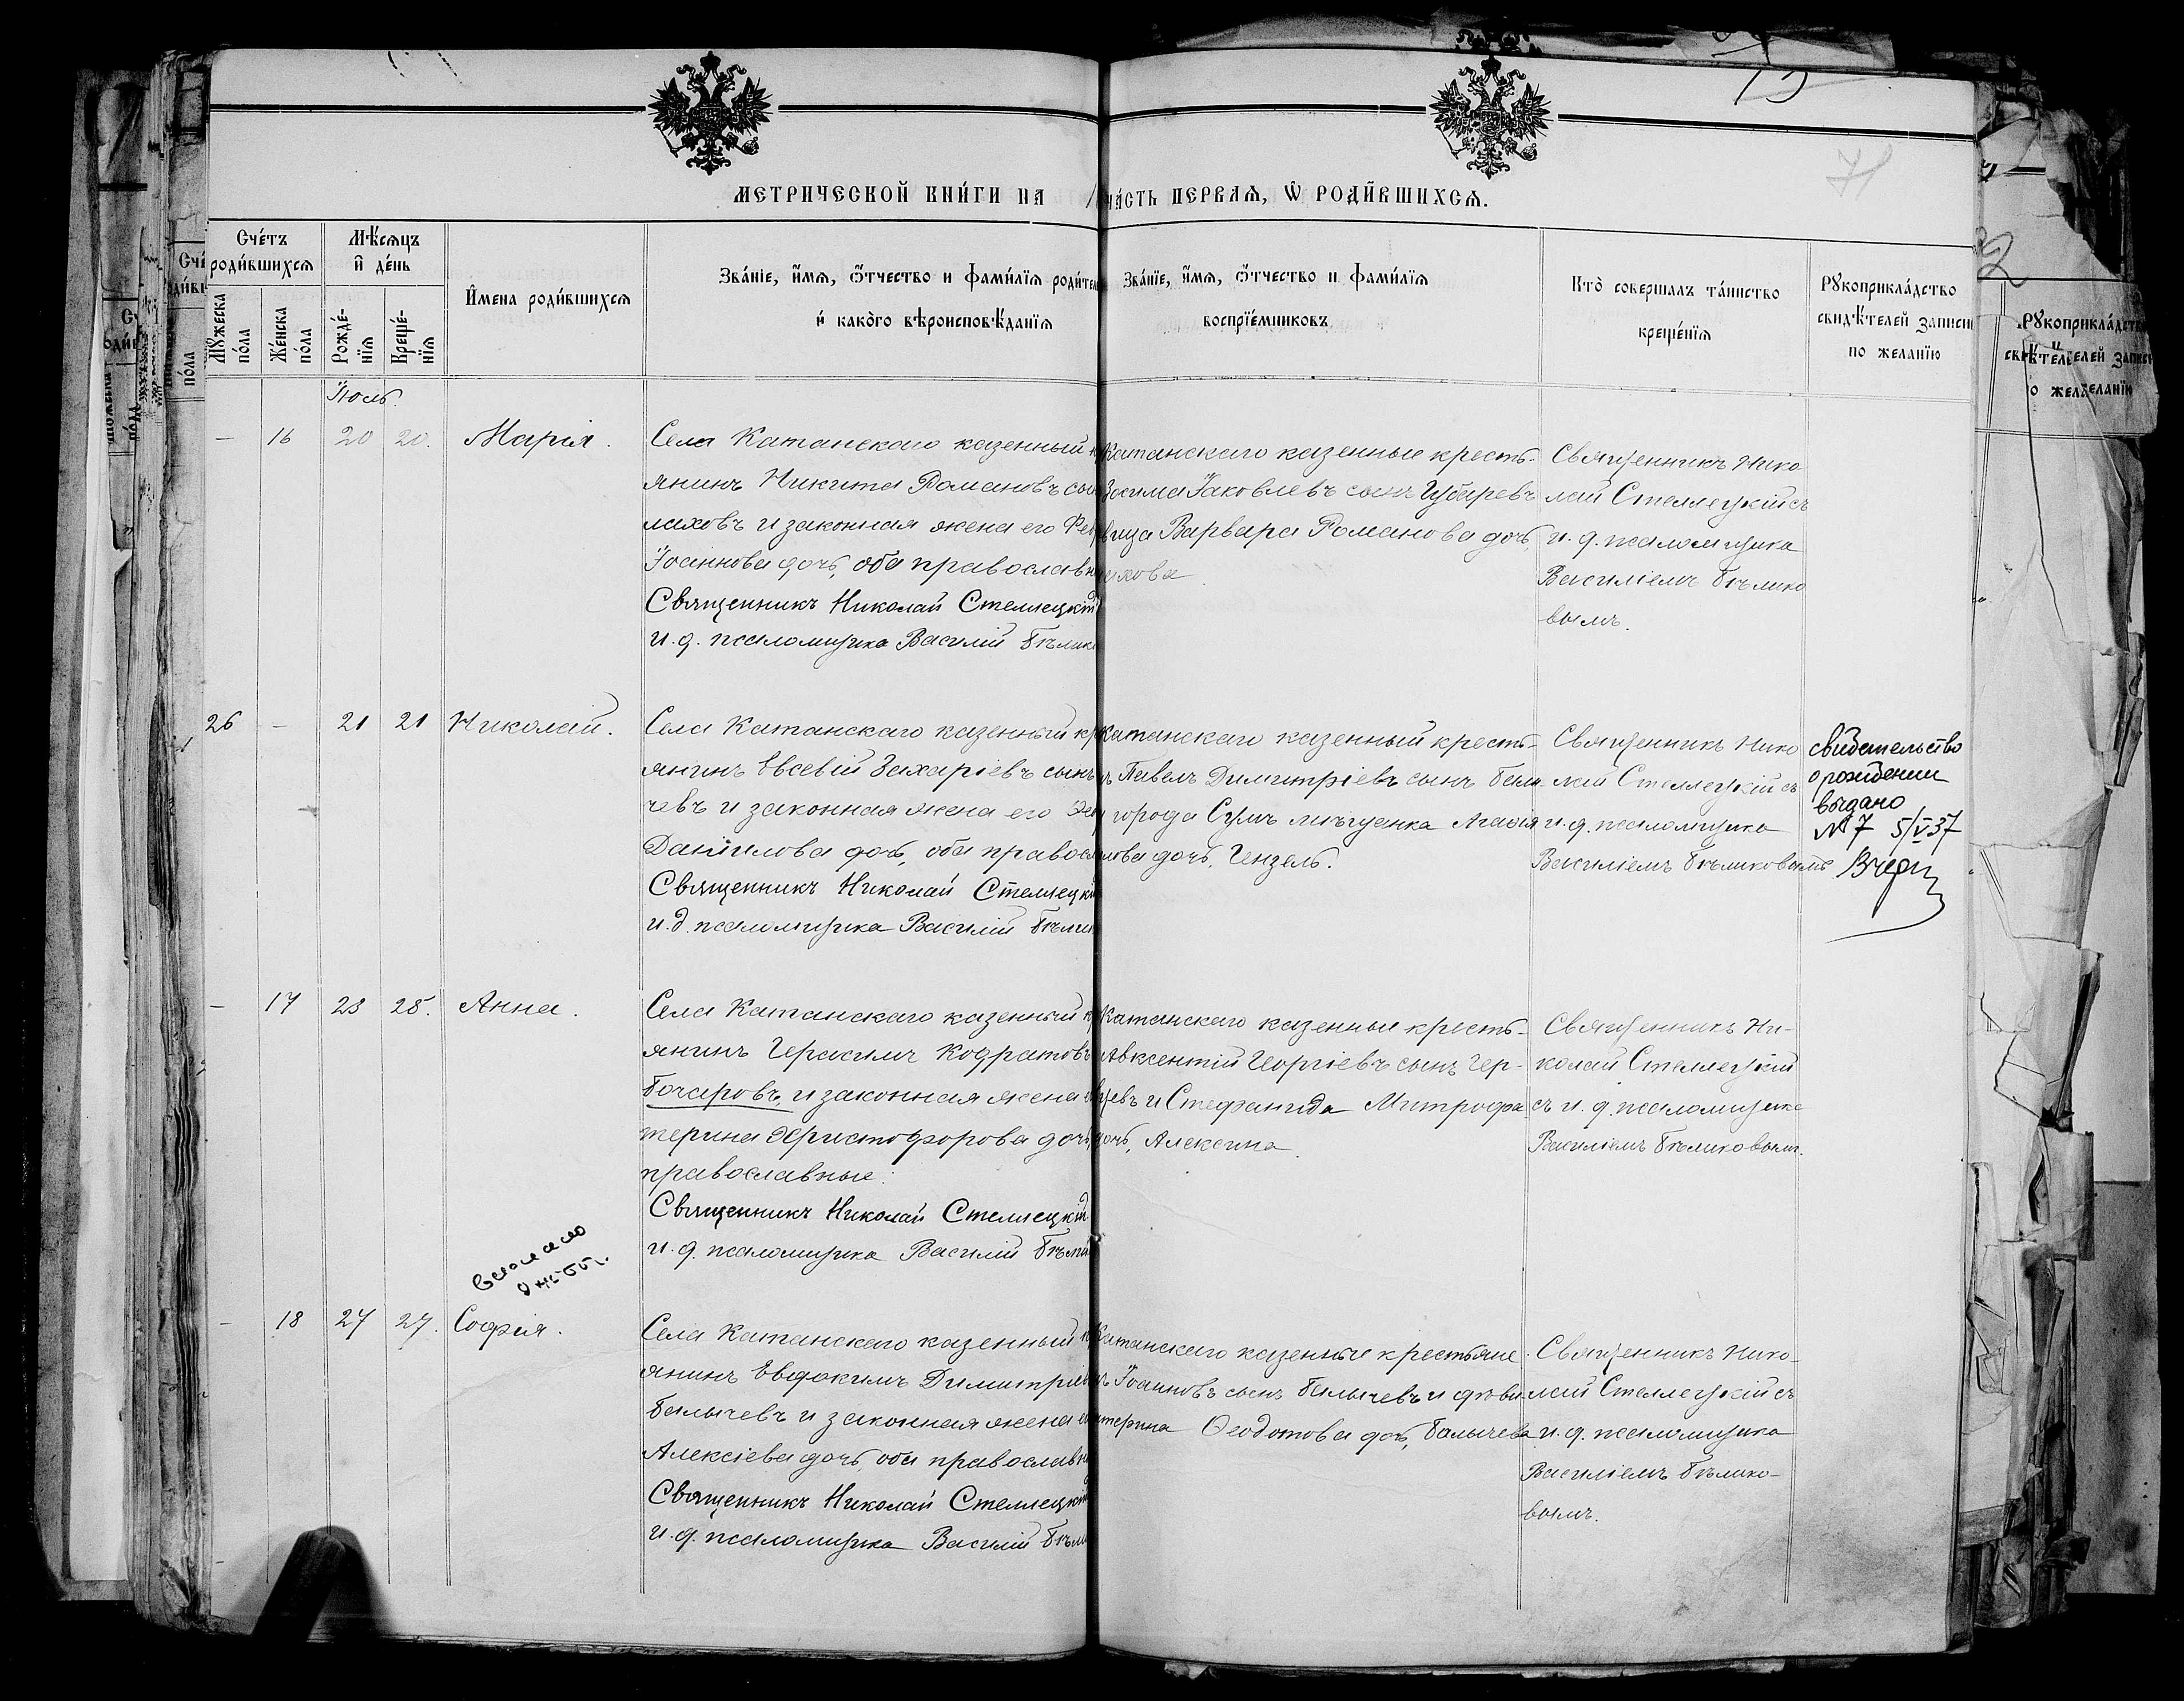 МЕТРИЧЕСКОЙ КНИ́ГИ НА
ЧА́СТЬ ПЕРВАѦ, Ѡ҆ РОДИ́ВШИХСѦ.
Сче́тъ роди́вшихсѧ
Мѣ́сѧцъ и҆ де́нь
И҆мена роди́вшихсѧ
Зва́нїе, и҆́мѧ, ѻ҆́тчество и фами́лїѧ роди́те
и҆ како́го вѣроисповѣ́данїѧ
Зва́нїе, и҆́мѧ, ѻ҆́тчество и фами́лїѧ
воспрїе́мниковъ
Кто̀ совершалъ та́инство
креще́нїѧ
Рꙋкоприкла́дство
свидѣ́телей записи
по жела́нїю
Мꙋ́жеска по́ла
Же́нска по́ла
Рожде́-нїѧ
Креще́-нїѧ
Іюль.
— 16 20 20. Марія.
Села Катанскаго казенный
янинъ Никита Романовъ сын
лаховъ и законная жена его
Іоаннова дочь, оба православн
Священникъ Николай Стеллецкій
и. д. псаломщика Василій Бѣлик
Катанскаго казенные кресть-
Зосима Іаковлевъ сынъ Губаревъ
вица Варвара Романова дочь
лахова.
Священникъ Нико
лай Стеллецкій съ
и. д. псаломщика
Василіемъ Бѣлико
вымъ.
26 — 21 21 Николай.
Села Катанскаго казенный кр
янинъ Евсевій Захаріевъ сынъ
чевъ и законная жена его
Даніилова дочь, оба правосл
Священникъ Николай Стеллецкій
и. д. псаломщика Василій Бѣлик
Катанскаго казенный кресть-
ъ Павелъ Димитріевъ сынъ
города Сумъ мѣщанка Агаѳія
лова дочь, Гензель.
Священникъ Нико
лай Стеллецкій съ
и. д. псаломщика
Василіемъ Бѣликовымъ
свидетельство
о рождении
выдано
№ 7 5/V 37
— 17 23 25. Анна.
Села Катанскаго казенный к
янинъ Герасимъ Кодратовъ
Бочаровъ, и законная жена е
терина Христофорова дочь,
православные.
Священникъ Николай Стеллецкій
и. д. псаломщика Василій Бѣли
Катанскаго казенные кресть-
Авксентій Георгіевъ сынъ
цевъ и Стефанида Митрофа
дочь, Алексина.
Священникъ Ни-
колай Стеллецкій
съ и. д. псаломщика
Василіемъ Бѣликовымъ.
— 18 27 27. Софія.
Села Катанскаго казенный к
янинъ Евдокимъ Димитріев
Балычевъ и законная жена е
Алексіева дочь, оба православн
Священникъ Николай Стеллецкій
и. д. псаломщика Василій Бѣли
Катанскаго казенные крестьяне
ъ Іоанновъ сынъ Балычевъ и дѣви
терина Ѳеодотова дочь, Балычева
Священникъ Нико-
лай Стеллецкій съ
и. д. псаломщика
Василіемъ Бѣлико-
вымъ.